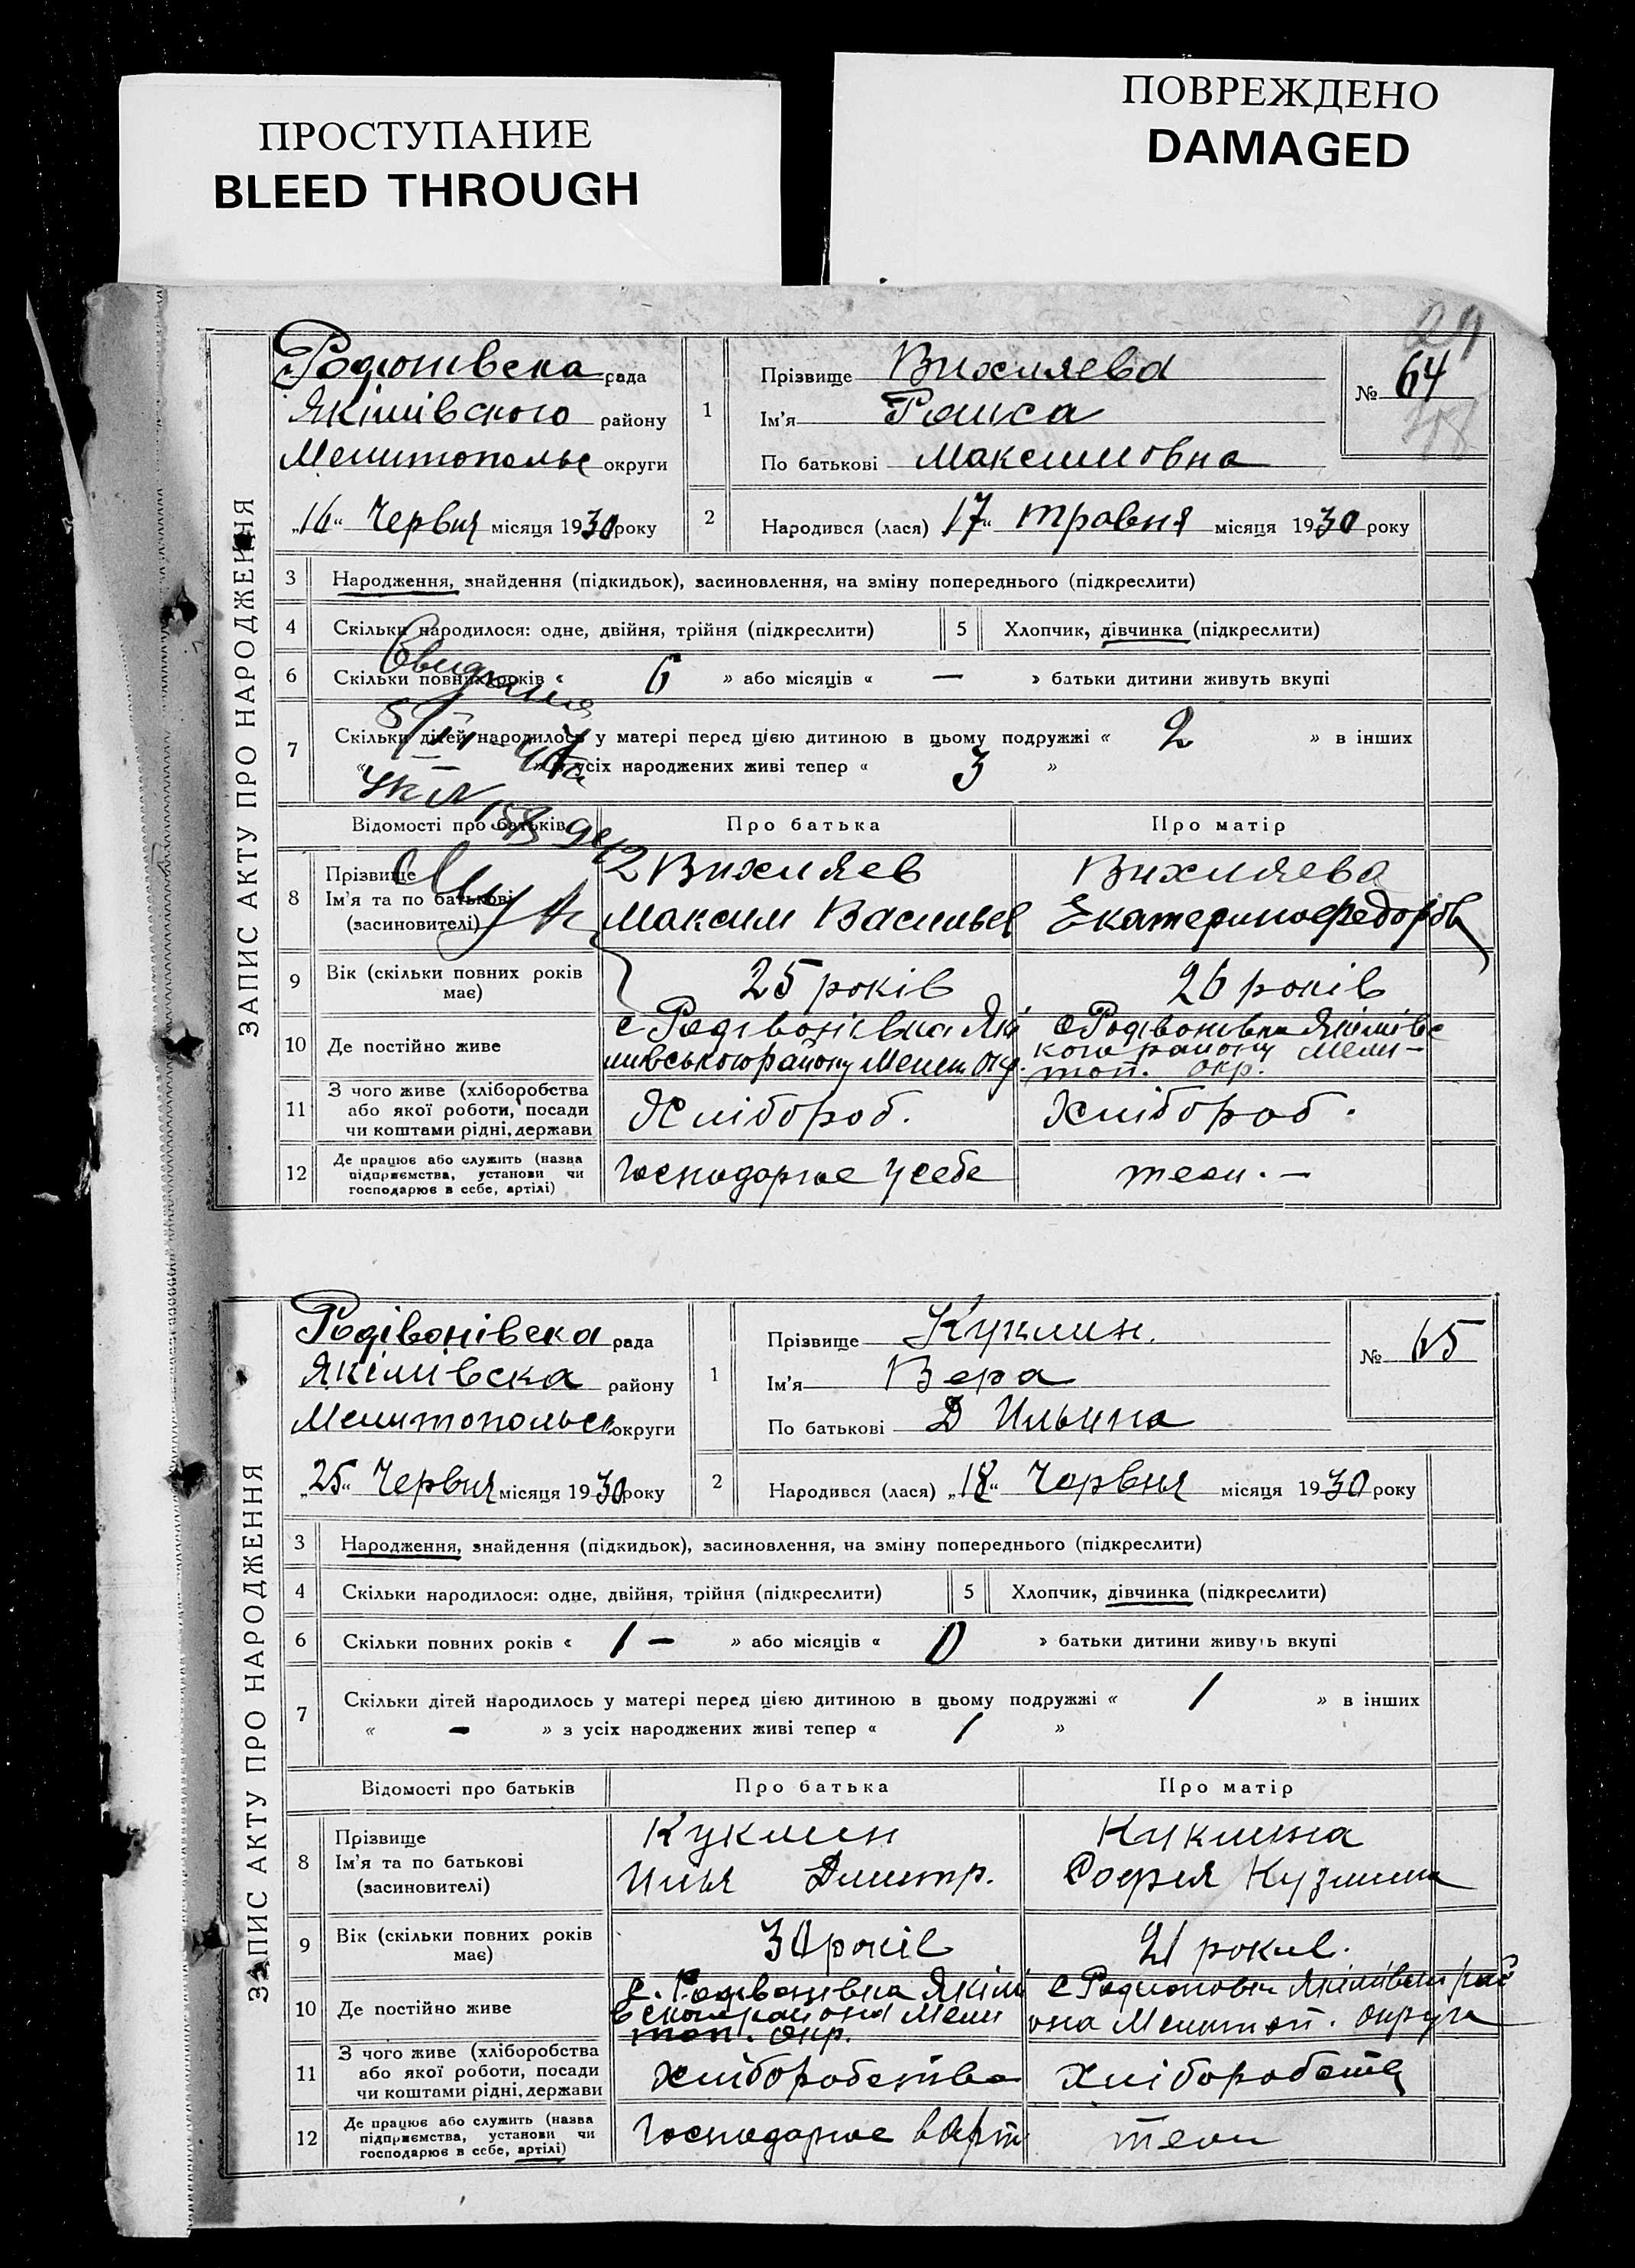 ПРОСТУПАНИЕ
BLEED THROUGH
ПОВРЕЖДЕНО
DAMAGED
29
ЗАПИС АКТУ ПРО НАРОДЖЕННЯ
Родионівска рада
Якімівского району
Мелитопольс округи
„16“ Червня місяця 1930 року
1
Прізвище Вихляева
Ім'я Раиса
По батькові Максимовна
№ 64
2 Народився (лася) 17“ травня місяця 1930 року
3 Народження, знайдення (підкидьок), засиновлення, на зміну попереднього (підкреслити)
4 Скільки народилося: одне, двійня, трійня (підкреслити) 5 Хлопчик, дівчинка (підкреслити)
6 Скільки повних років « 6 » або місяців « — » батьки дитини живуть вкупі
7 Скільки дітей народилось у матері перед цією дитиною в цьому подружжі « 2 » в інших
« » з усіх народжених живі тепер « 3 »
Відомості про батьків Про батька Про матір
8 Прізвище Вихляев Вихляева
Ім'я та по батькові Максим Васильев Екатерина Федоров
(засновителі)
9 Вік (скільки повних років має) 25 років 26 років
10 Де постійно живе с Родівонівка Які с Родівонівка Якімівс
мивського району Мелит Окр. кого району Мели-
топ. окр.
11 З чого живе (хліборобства
або якої роботи, посади Хлібороб. Хлібороб.
чи коштами рідні, держави
12 Де працює або служить (назва
підприємства, установи чи Господарює у себе теж. —
господарює в себе, артілі)
ЗАПИС АКТУ ПРО НАРОДЖЕННЯ
Родівонівска рада
Якімівска району
Мелитопольск округи
„25“ Червня місяця 1930 року
1
Прізвище Куклин.
Ім'я Вера
По батькові Д Ильина
№ 65
2 Народився (лася) „18“ Чорвня місяця 1930 року
3 Народження, знайдення (підкидьок), засиновлення, на зміну попереднього (підкреслити)
4 Скільки народилося: одне, двійня, трійня (підкреслити) 5 Хлопчик, дівчинка (підкреслити)
6 Скільки повних років « 1 — » або місяців « 0 » батьки дитини живуть вкупі
7 Скільки дітей народилось у матері перед цією дитиною в цьому подружжі « 1 » в інших
« — » з усіх народжених живі тепер « 1 »
Відомості про батьків Про батька Про матір
8 Прізвище Куклин Куклина
Ім'я та по батькові Илья Дмитр. София Кузмин
(засиновителі)
9 Вік (скільки повних років має) 30 років 21 рокив.
10 Де постійно живе с. Родівонівка Якімі с Родионовка Якімівск рай
вского района Мели она Мелитоп. округа
топ. окр.
11 З чого живе (хліборобства
або якої роботи, посади хліборобства Хліборобств
чи коштами рідні, держави
12 Де працює або служить (назва
підприємства, установи чи Господарює в Арт теж
господарює в себе, артілі)